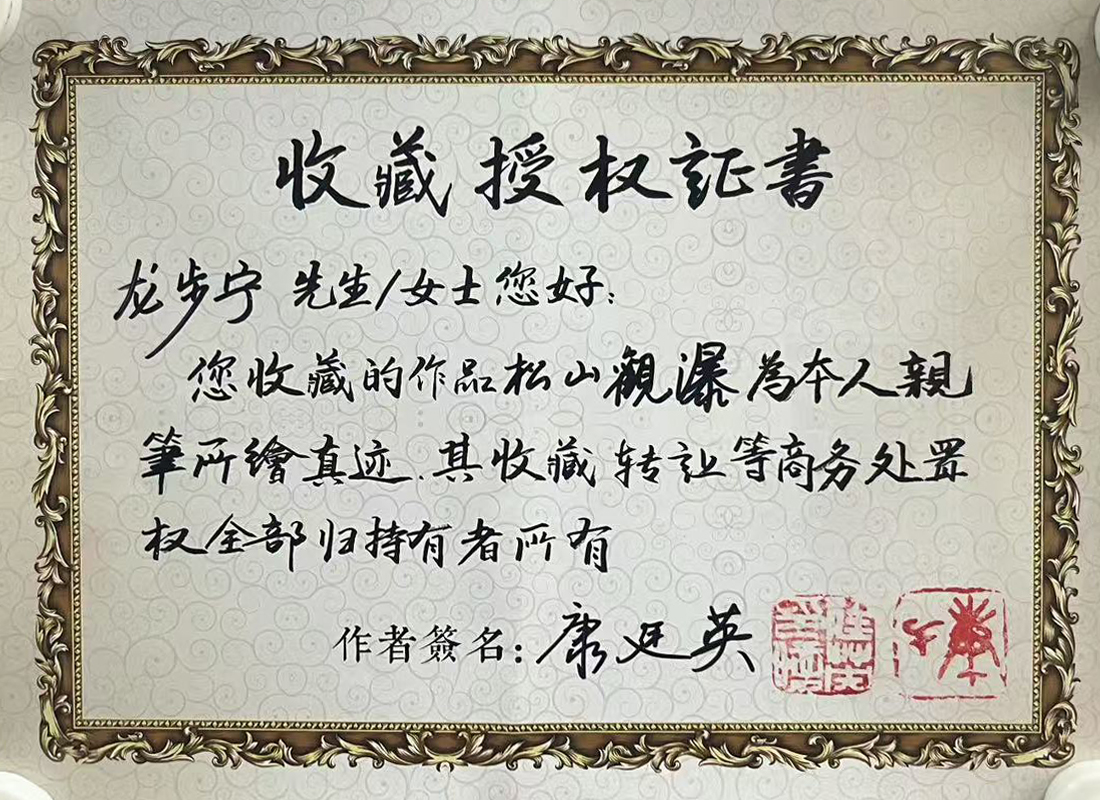 收藏授权証書
龙步宁 先生/女士您好:
您收藏的作品松山觀瀑為本人親
筆所繪真迹.其收藏转讼等商务处置
权全部归持有者所有
作者簽名:康廷英